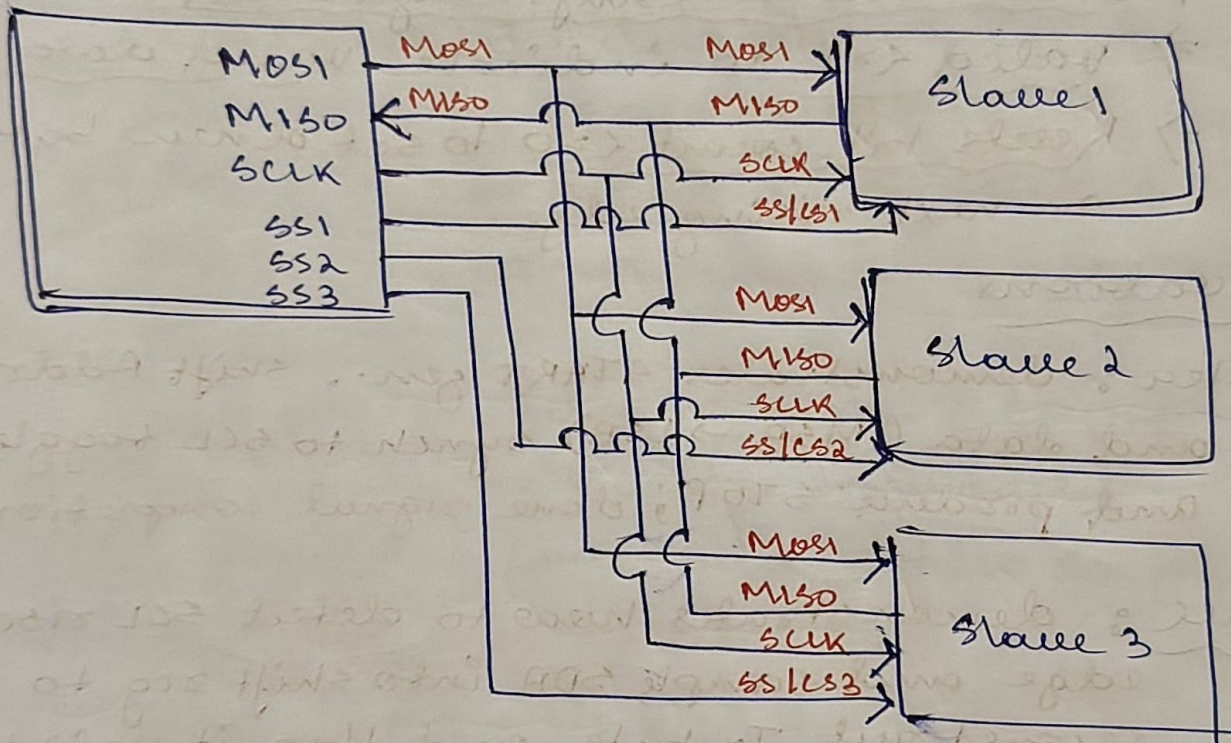 MOSI
MISO
SCLK
SS1
SS2
SS3
MOSI MOSI
MISO MISO
SCLK
SS/CS1
Slave 1
MOSI
MISO
SCLK
SS/CS2
Slave 2
MOSI
MISO
SCLK
SS/CS3
Slave 3